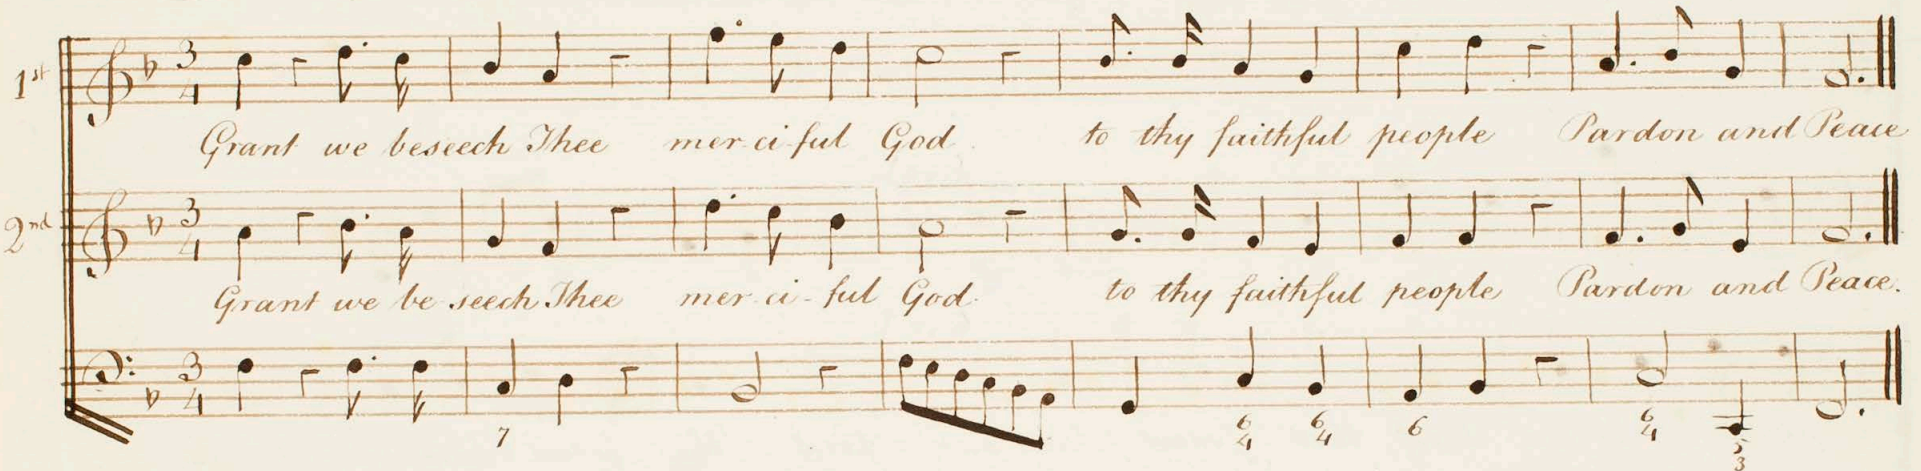 1st 3 4
Grant we beseech Thee mer-ci-ful God to thy faithful people Pardon and Peace
2nd 3 4
Grant we be seech Thee mer-ci-ful God to thy faithful people Pardon and Peace.
3 4
7 6 4 6 4 6 6 4 5 3